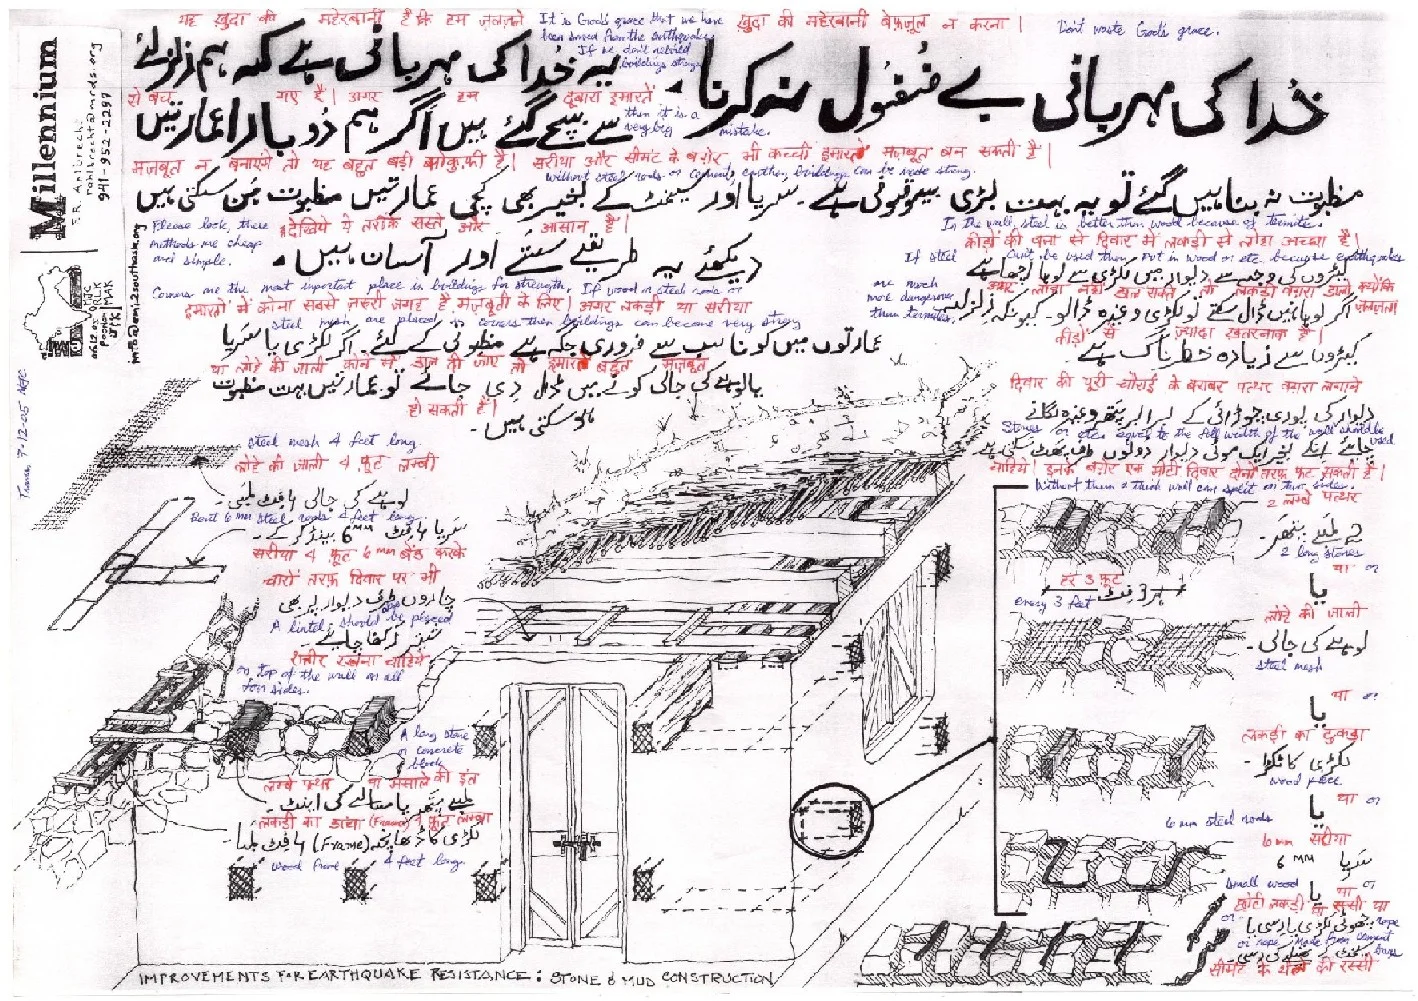 यह ख़ुदा की महेरबानी है कि हम ज़लज़ले
It is God's grace that we have
been saved from the earthquake
If we don't rebuild
buildings strong
ख़ुदा की महेरबानी बेफ़ज़ूल न करना |
Don't waste God's grace.
خُدا کی مہربانی بے فُضُول نہ کرنا ۔ یہ خُدا کی مہربانی ہے کہ ہم زلزلے
से बच गए हैं | अगर हम दुबारा इमारतें
then it is a
very big mistake.
سے بچ گئے ہیں اگر ہم دُوبارا عمارتیں
मज़बूत न बनाएंगे तो यह बहुत बड़ी बेवकुफ़ी है | सरीया और सीमंट के बग़ैर भी कच्ची इमारतें मज़बूत बन सकती है |
without steel rods or cement, earthen buildings can be made strong.
مظبوت نہ بناہیں گئے تو یہ بہت بڑی بیوقوفی ہے ۔ سریا اور سیمنٹ کے بغیر بھی کچی عمارتیں مظبوت بن سکتی ہیں
Please look, these
methods are cheap
and simple.
देखिये ये तरीके सस्ते और आसान हैं |
دیکھئے یہ طریقے سستے اور آسان ہیں ۔
Corners are the most important place in buildings for strength. If wood or steel rods or
इमारतों में कोना सबसे जरुरी जगह है मज़बूती के लिए | अगर लकड़ी या सरीया
steel mesh are placed in corners then buildings can become very strong
عمارتوں میں کونا سب سے ضروری جگہ ہے مظبوتی کے لئے ۔ اگر لکڑی یا سریا
या लोहे की जाली कोने में डाल दी जाए तो इमारतें बहुत मज़बूत
یا لوہے کی جالی کونے میں ڈال دی جائے تو عمارتیں بہت مظبوت
हो सकती हैं |
ہو سکتی ہیں ۔
In the wall, steel is better than wood because of termites.
कीड़ों की वजा से दिवार में लकड़ी से लोहा अच्छा है |
If steel can't be used then put in wood or etc. because earthquakes
کیڑوں کی وجہ سے دیوار میں لکڑی سے لوہا اچھا ہے
अगर लोहा नहीं डाल सकते तो लकड़ी वग़ैरा डालो क्योंकि ज़लज़ला
are much
more dangerous
than termites.
اگر لوہا نہیں ڈال سکتے تو لکڑی وغیرہ ڈالو ۔ کیونکہ زلزلہ
कीड़ों से ज़्यादा ख़तरनाक है |
کیڑوں سے زیادہ خطرناک ہے
दिवार की पूरी चौड़ाई के बराबर पत्थर वग़ैरा लगाने
دیوار کی پوری چوڑائی کے برابر پتھر وغیرہ لگانے
Stones or etc. equal to the full width of the wall should be used
चाहिये | इनके बग़ैर एक मोटी दिवार दोनों तरफ़ फट सकती है |
Without them a thick wall can split on two sides.
Millennium
F.R. Ahlbrecht
rahlbrecht@mrds.org
941-952-2297
steel mesh 4 feet long.
लोहे की जाली 4 फूट लम्बी
لوہے کی جالی 4 فٹ لمبی
Bent 6 mm steel rods 4 feet long.
سریا 4 فٹ 6 mm بینڈ کر کے
सरीया 4 फूट 6 mm बेंड करके
चारों तरफ़ दिवार पर भी
چاروں طرف دیوار پر بھی
A lintel should be placed
शतीर रखना चाहिये
on top of the wall on all
four sides.
A long stone
or concrete
block
लम्बे पत्थर या मसाले की इंत
لمبے پتھر یا مسالے کی اینٹ ۔
लकड़ी का डाचा (Frame) 4 फूट लम्बा
لکڑی کا ڈھانچہ (Frame) 4 فٹ لمبا
wood frame 4 feet long.
2 लम्बे पत्थर
2 لمبے پتھر ۔
2 long stones
या or
یا
हर 3 फूट
ہر 3 فٹ
every 3 feet
लोहे की जाली
لوہے کی جالی ۔
steel mesh
या or
یا
लकड़ी का टुकड़ा
لکڑی کا ٹکڑا ۔
wood piece.
या or
یا
6 mm steel rods
6 mm सरीया
6 MM سریا
या or
یا
small wood
छोटी लकड़ी या रस्सी या
چھوٹی لکڑی یا رسی یا
or rope made from cement bags
सीमंट के थैलों की रस्सी
IMPROVEMENTS FOR EARTHQUAKE RESISTANCE: STONE & MUD CONSTRUCTION